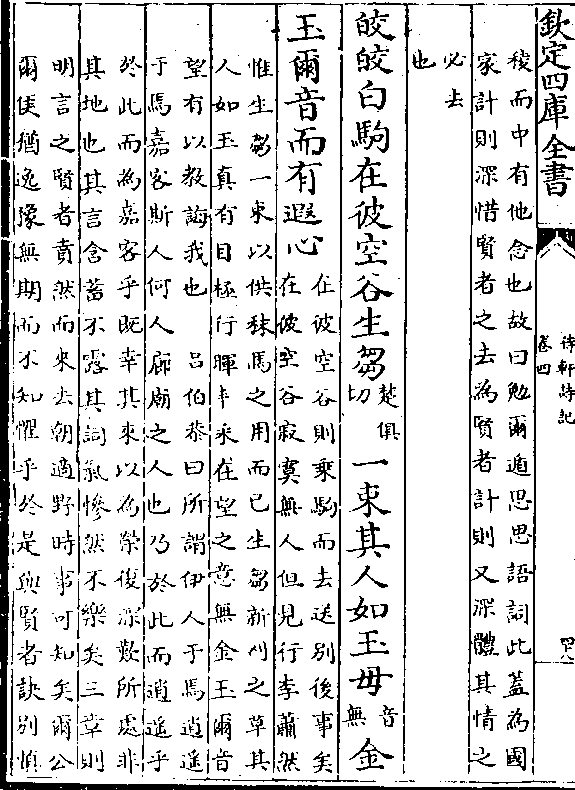 欽定四庫全書
待軒詩記
卷四
稜而中有他念也故曰勉爾遁思思語詞此蓋為國
家計則深惜賢者之去為賢者計則又深體其情之
必去
也
皎皎白駒在彼空谷生芻楚俱切一束其人如玉毋音無金
玉爾音而有遐心在彼空谷則乘駒而去送別後事矣
在彼空谷寂寞無人但見行李蕭然
惟生芻一束以供秣馬之用而已生芻新刈之草其
人如玉真有目極行暉半采在望之意無金玉爾音
望有以教誨我也　呂伯恭曰所謂伊人于焉逍遙
于焉嘉客斯人何人廊廟之人也乃於此而逍遙乎
於此而為嘉客乎既幸其來以為榮復深歎所處非
其地也其言含蓄不露其詞氣慘然不樂矣三章則
明言之賢者賁然而來去朝適野時事可知矣爾公
爾侯猶逸豫無期而不知懼乎於是與賢者訣別慎